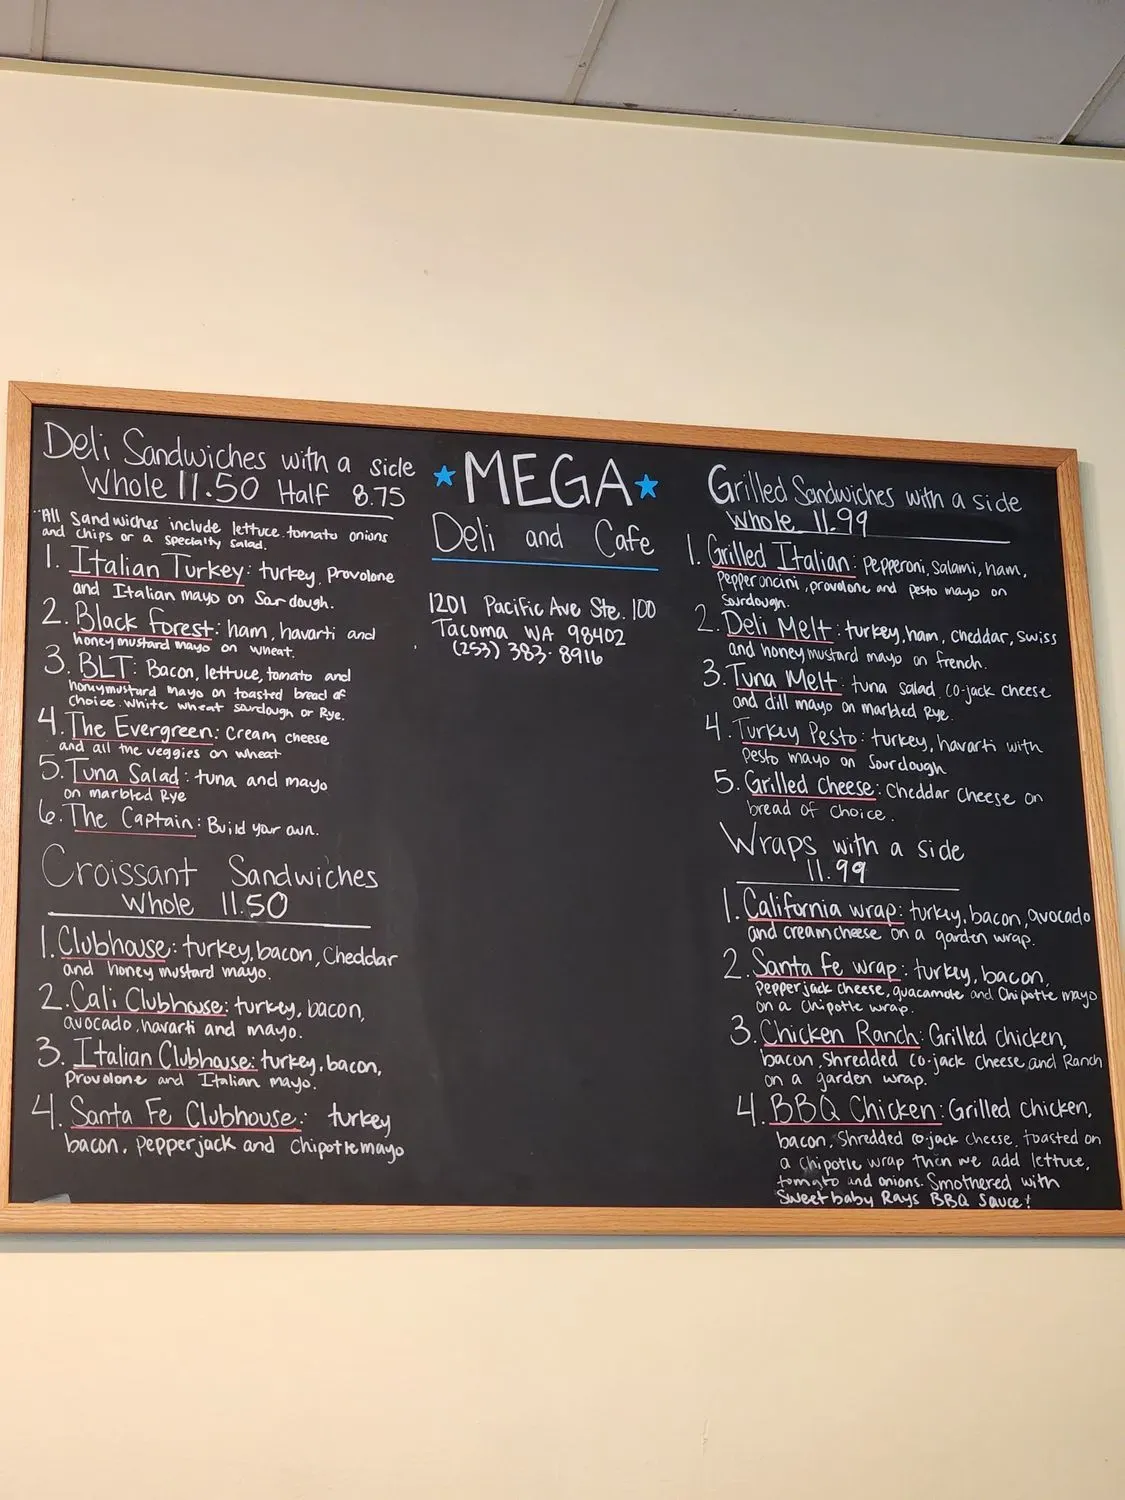 Deli Sandwiches with a side
Whole 11.50 Half 8.75
"All Sandwiches include lettuce.tomato onions
and chips or a specialty salad.
1. Italian Turkey: turkey, Provolone
and Italian mayo on Sour dough.
2. Black forest: ham, havarti and
honey mustard mayo on wheat.
3. BLT: Bacon, lettuce, tomato and
honeymustard mayo on toasted bread of
choice. white wheat sourdough or Rye.
4. The Evergreen: Cream cheese
and all the veggies on wheat
5. Tuna Salad: tuna and mayo
on marbled Rye
6. The Captain: Build your own.
Croissant Sandwiches
Whole 11.50
1. Clubhouse: turkey, bacon, Cheddar
and honey mustard mayo.
2. Cali Clubhouse: turkey, bacon,
avocado, havarti and mayo.
3. Italian Clubhouse: turkey, bacon,
Provolone and Italian mayo.
4. Santa Fe Clubhouse: turkey
bacon, pepperjack and Chipotle mayo
MEGA
Deli and Cafe
1201 Pacific Ave Ste. 100
Tacoma WA 98402
(253) 383-8916
Grilled Sandwiches with a side
Whole 11.99
1. Grilled Italian: Pepperoni, Salami, ham,
Pepperoncini, provolone and pesto mayo on
Sourdough.
2. Deli Melt: turkey, ham, cheddar, swiss
and honey mustard mayo on french.
3. Tuna Melt: tuna salad, co-jack cheese
and dill mayo on marbled Rye.
4. Turkey Pesto: turkey, havarti with
Pesto mayo on Sourdough
5. Grilled Cheese: Cheddar cheese on
bread of choice.
Wraps with a side
11.99
1. California wrap: turkey, bacon, avocado
and creamcheese on a garden wrap.
2. Santa Fe wrap: turkey, bacon,
Pepperjack cheese, guacamole and Chipotle mayo
on a chipotle wrap.
3. Chicken Ranch: Grilled chicken,
bacon, Shredded co-jack cheese and Ranch
on a garden wrap.
4. BBQ Chicken: Grilled chicken,
bacon, Shredded co-jack cheese, toasted on
a chipotle wrap then we add lettuce,
tomato and onions. Smothered with
Sweet baby Rays BBQ Sauce!